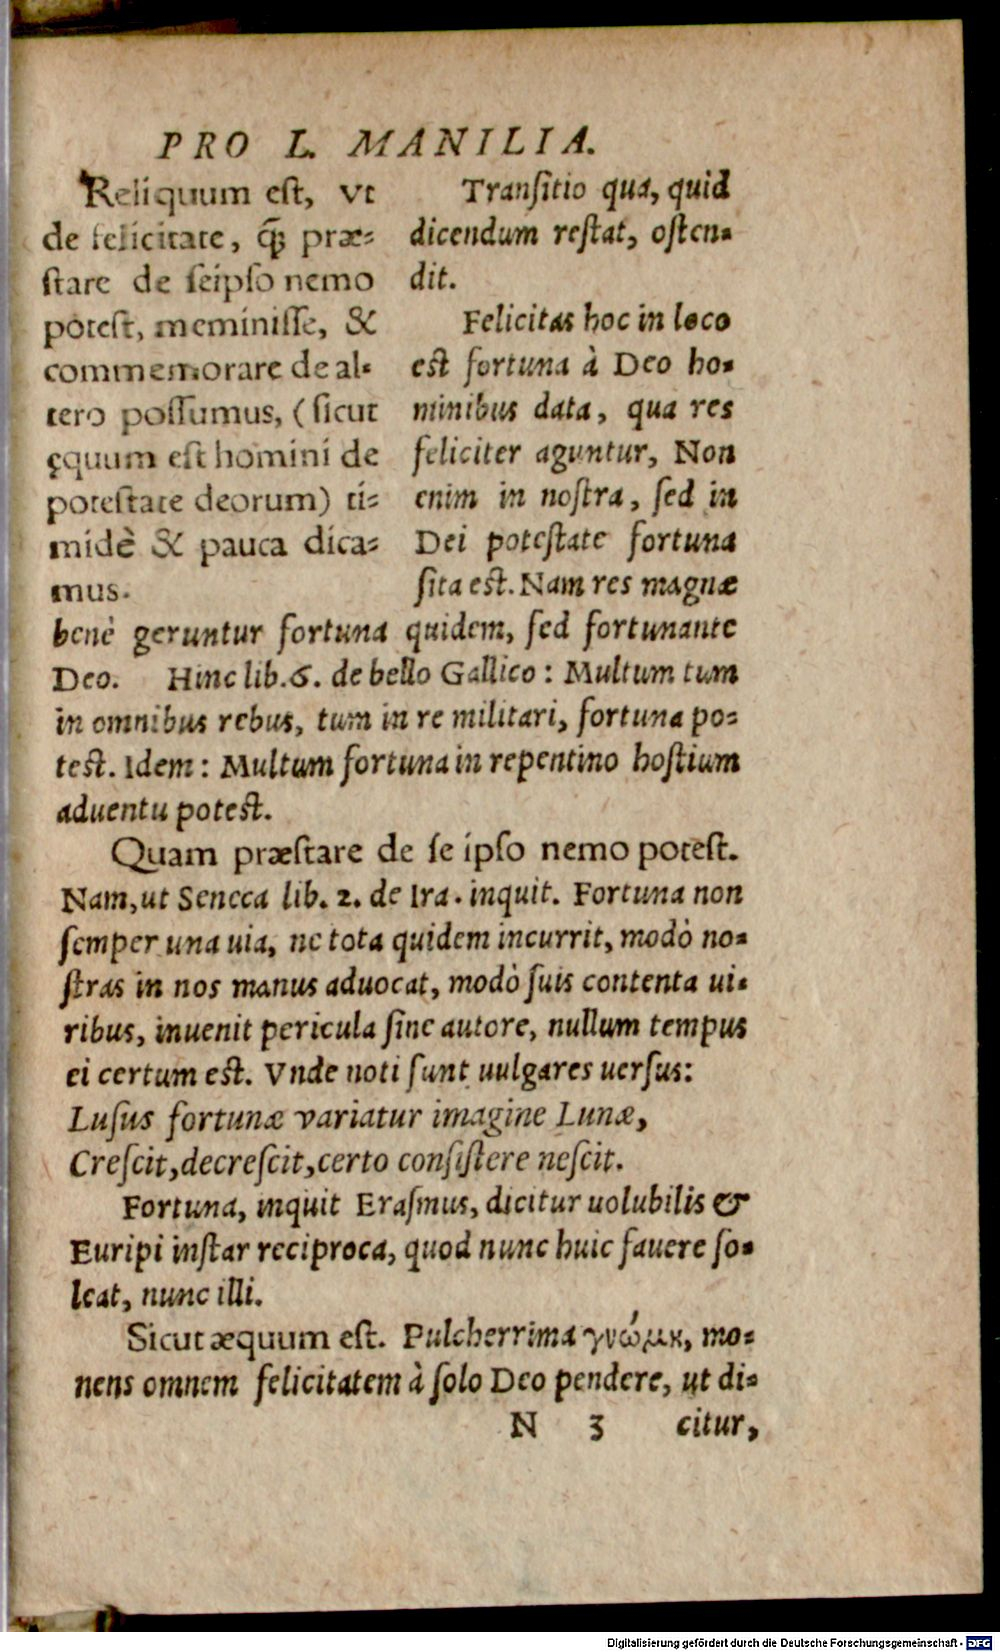 PRO L. MANILIA.
Reliquum est, vt
de felicitate, qȝ præ-
stare de seipso nemo
potest, meminisse, &
commemorare de al-
tero possumus, (sicut
ęquum est homini de
potestate deorum) ti-
midè & pauca dica-
mus.
Transitio qua, quid
dicendum restat, osten-
dit.
Felicitas hoc in loco
est fortuna à Deo ho-
minibus data, qua res
feliciter aguntur, Non
enim in nostra, sed in
Dei potestate fortuna
sita est. Nam res magnæ
benè geruntur fortuna quidem, sed fortunante
Deo. Hinc lib. 6. de bello Gallico: Multum tum
in omnibus rebus, tum in re militari, fortuna po-
test. Idem: Multum fortuna in repentino hostium
aduentu potest.
Quam præstare de se ipso nemo potest.
Nam, ut Seneca lib. 2. de Ira. inquit. Fortuna non
semper una uia, ne tota quidem incurrit, modò no-
stras in nos manus aduocat, modò suis contenta ui-
ribus, inuenit pericula sine autore, nullum tempus
ei certum est. Vnde noti sunt uulgares uersus:
Lusus fortunæ variatur imagine Lunæ,
Crescit, decrescit, certo consistere nescit.
Fortuna, inquit Erasmus, dicitur uolubilis &
Euripi instar reciproca, quod nunc huic fauere so-
leat, nunc illi.
Sicut æquum est. Pulcherrima γνώμη, mo-
nens omnem felicitatem à solo Deo pendere, ut di-
N 3 citur,
Digitalisierung gefördert durch die Deutsche Forschungsgemeinschaft - DFG